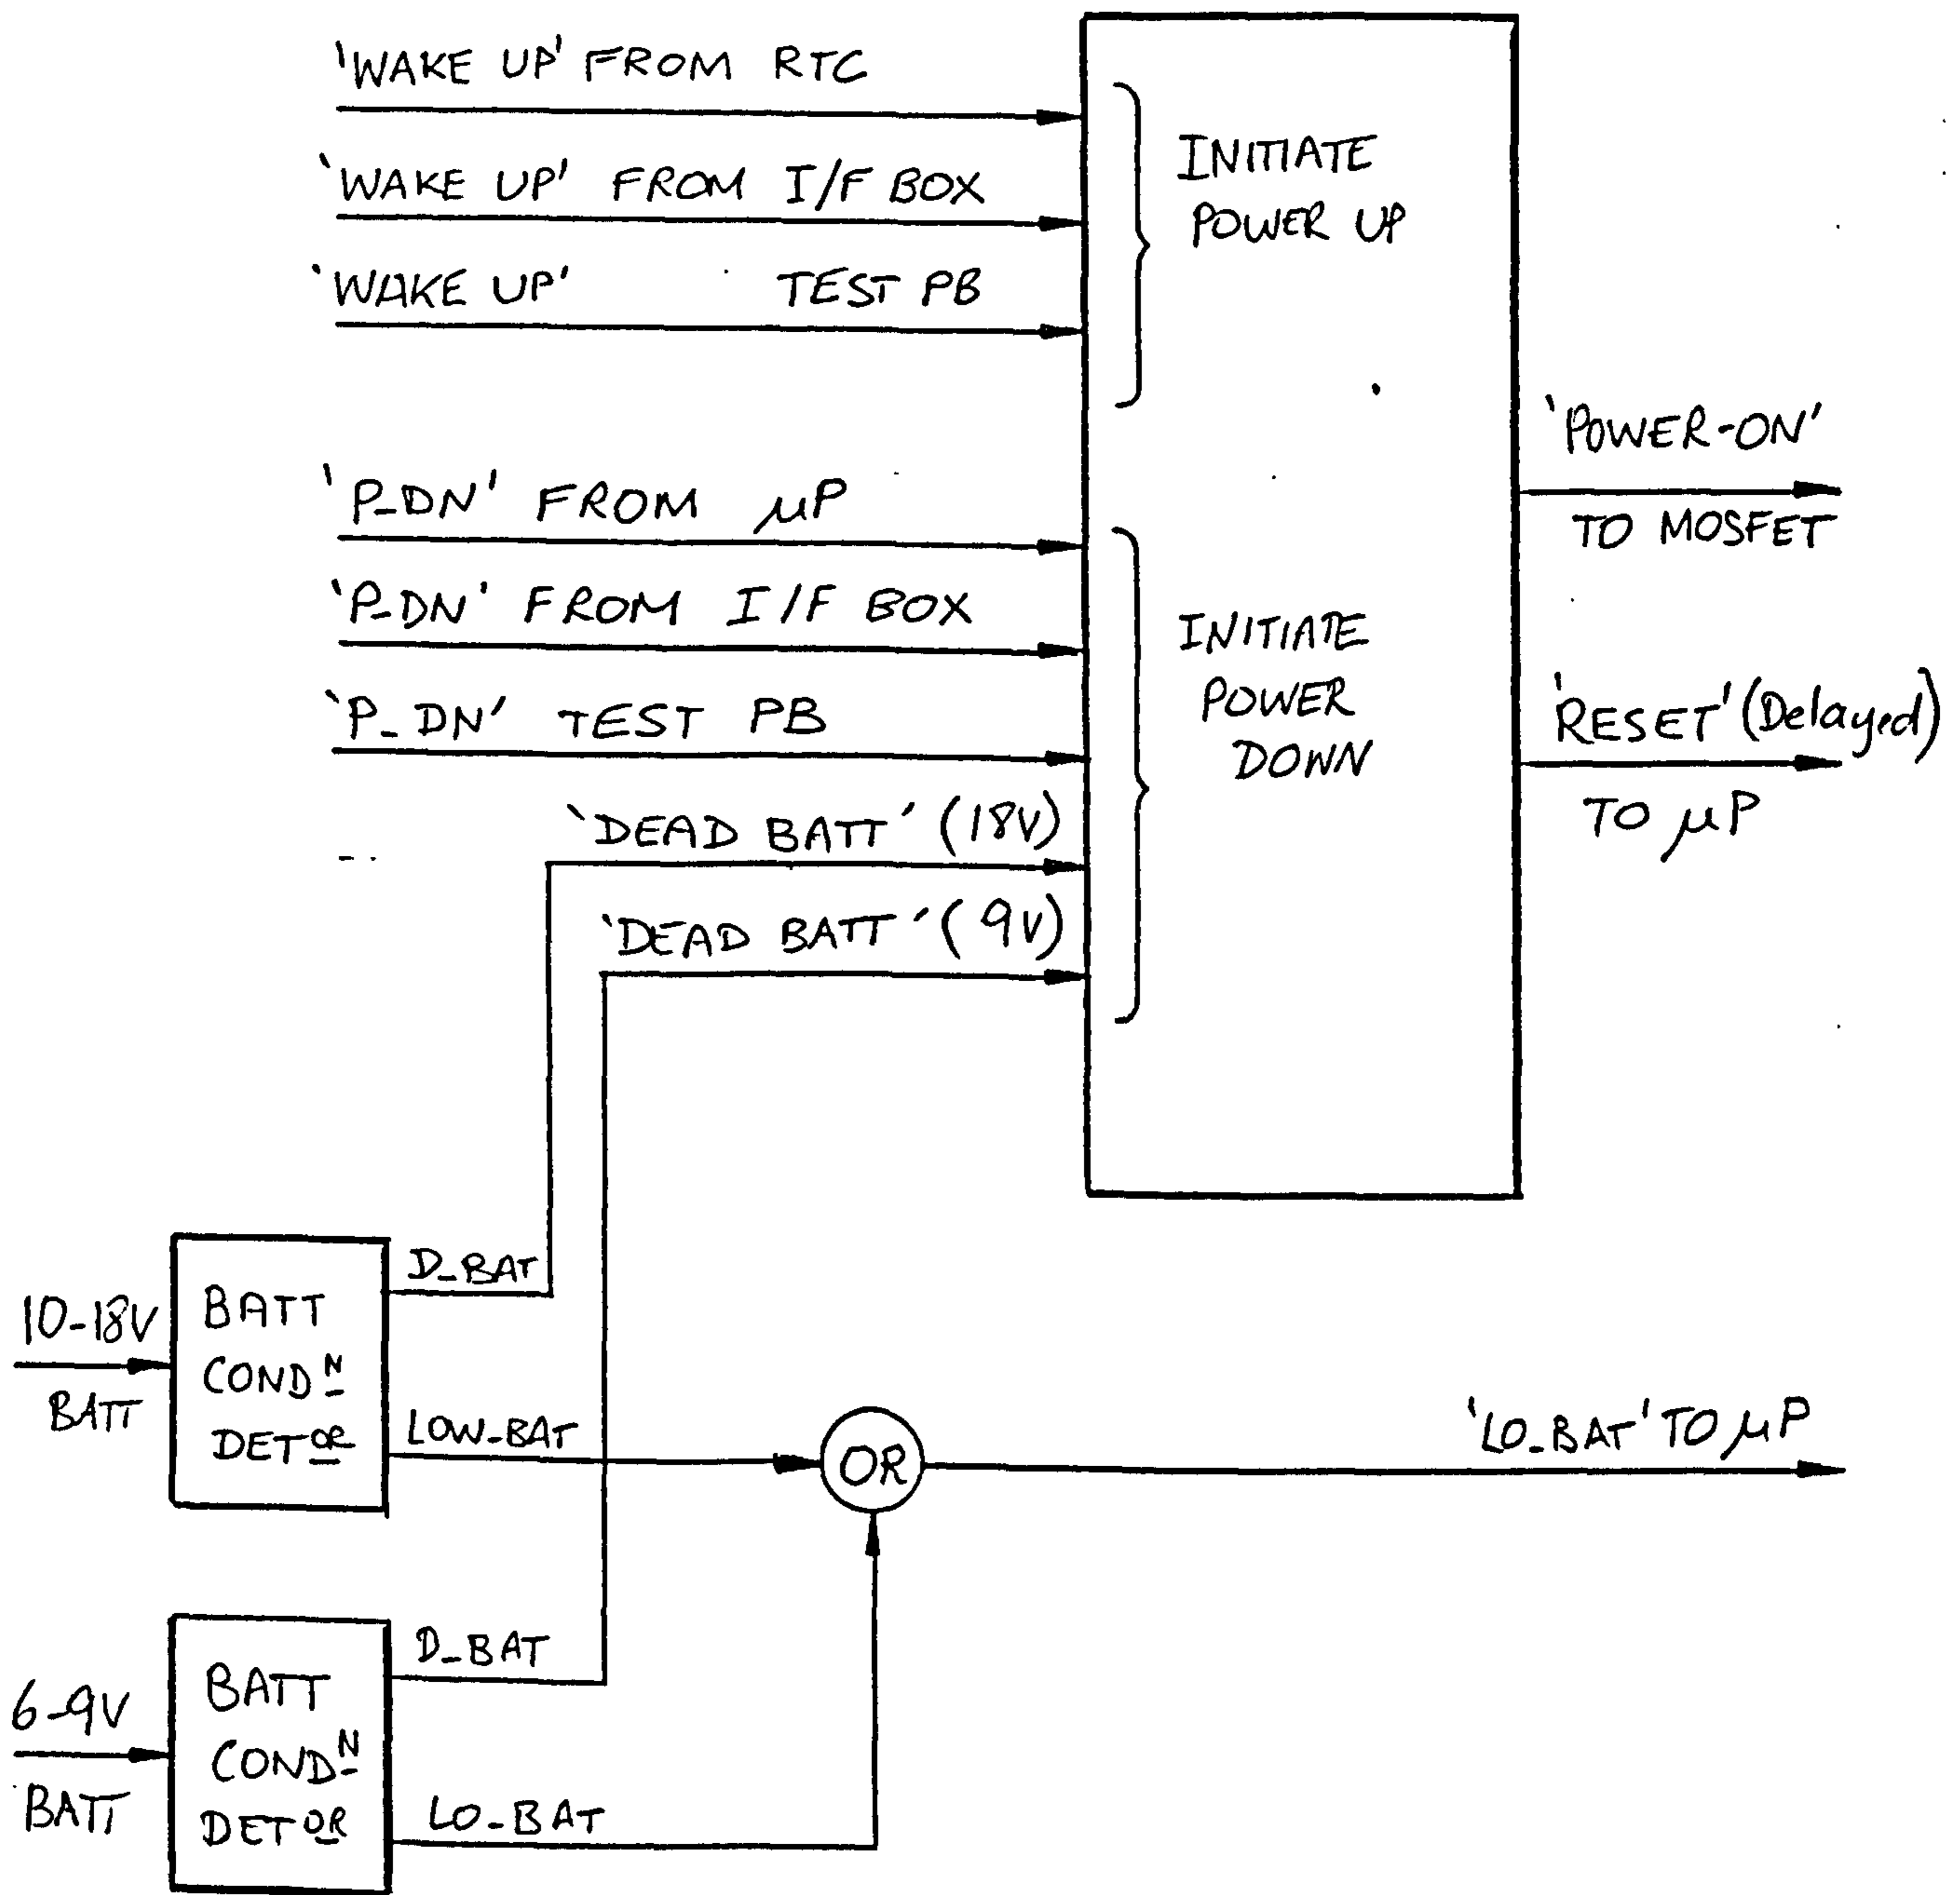 'WAKE UP' FROM RTC
'WAKE UP' FROM I/F BOX
'WAKE UP' TEST PB
INITIATE
POWER UP
'P_DN' FROM µP
'P_DN' FROM I/F BOX
'P_DN' TEST PB
'DEAD BATT' (18V)
'DEAD BATT' (9V)
INITIATE
POWER
DOWN
'POWER-ON'
TO MOSFET
'RESET' (Delayed)
TO µP
10-18V
BATT
BATT
COND N
DET OR
D_BAT
LOW-BAT
OR
'LO_BAT' TO µP
6-9V
BATT
BATT
COND N
DET OR
D_BAT
LO-BAT